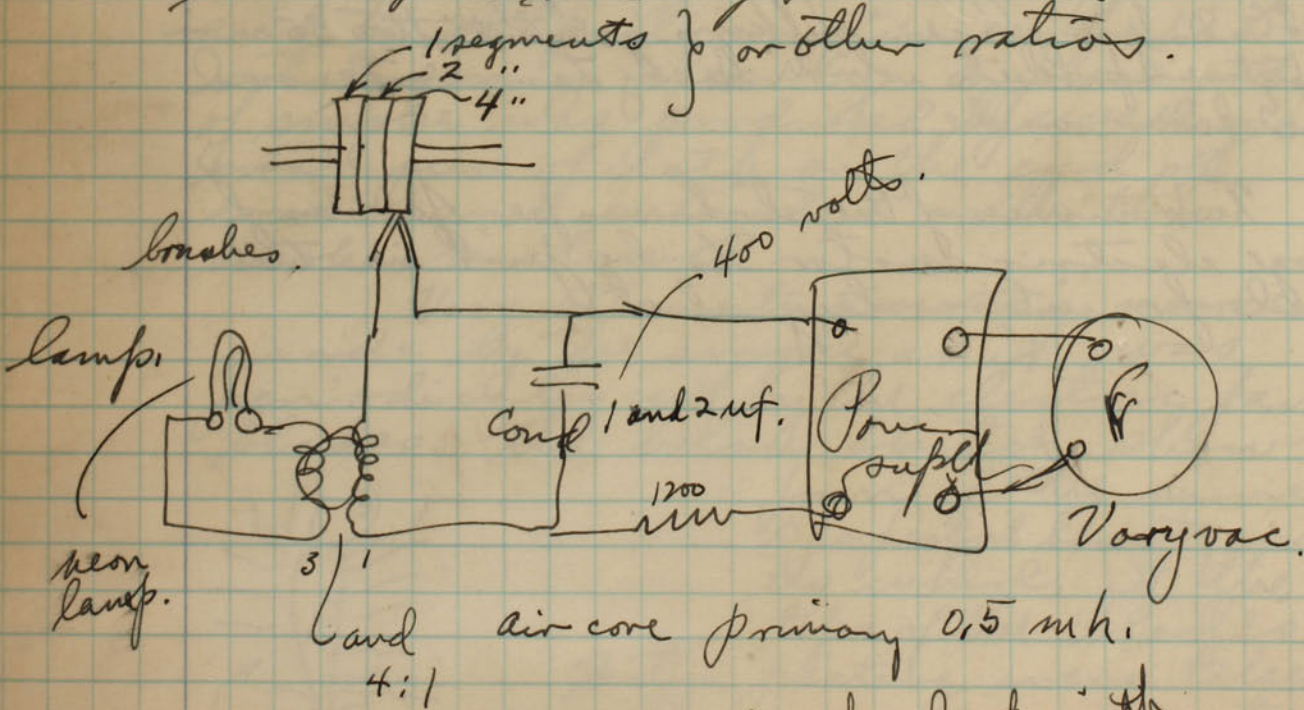 1 segments } or other ratios.
2 "
4 "
brushes.
400 volts.
lamp.
Cond 1 and 2 uf.
Power
supl
1200
Varyvac.
neon
lamp.
3 1
and
4:1
air core primary 0.5 mh.